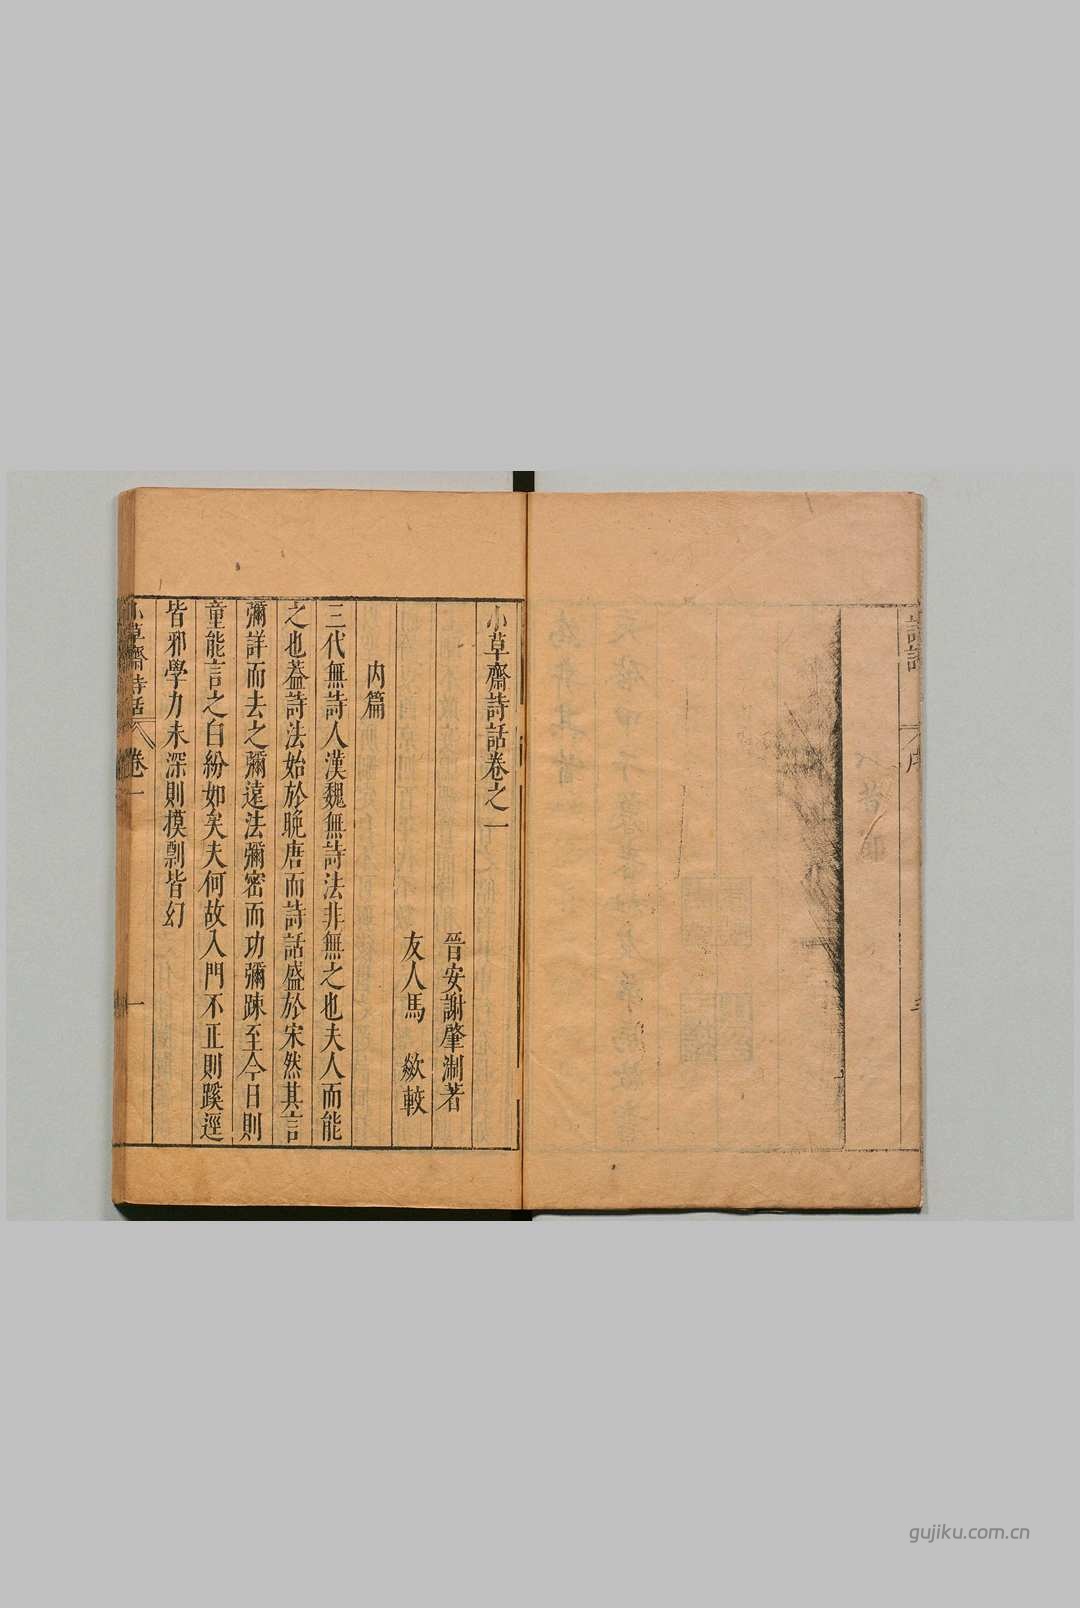 詩話
序
小草齋詩話卷之一
晉安謝肇淛著
友人馬　歘較
內篇
三代無詩人漢魏無詩法非無之也夫人而能
之也蓋詩法始於晚唐而詩話盛於宋然其言
彌詳而去之彌遠法彌密而功彌踈至今日則
童能言之白紛如矣夫何故入門不正則蹊逕
皆邪學力未深則摸剽皆幻
小草齋詩話
卷一
一
gujiku.com.cn